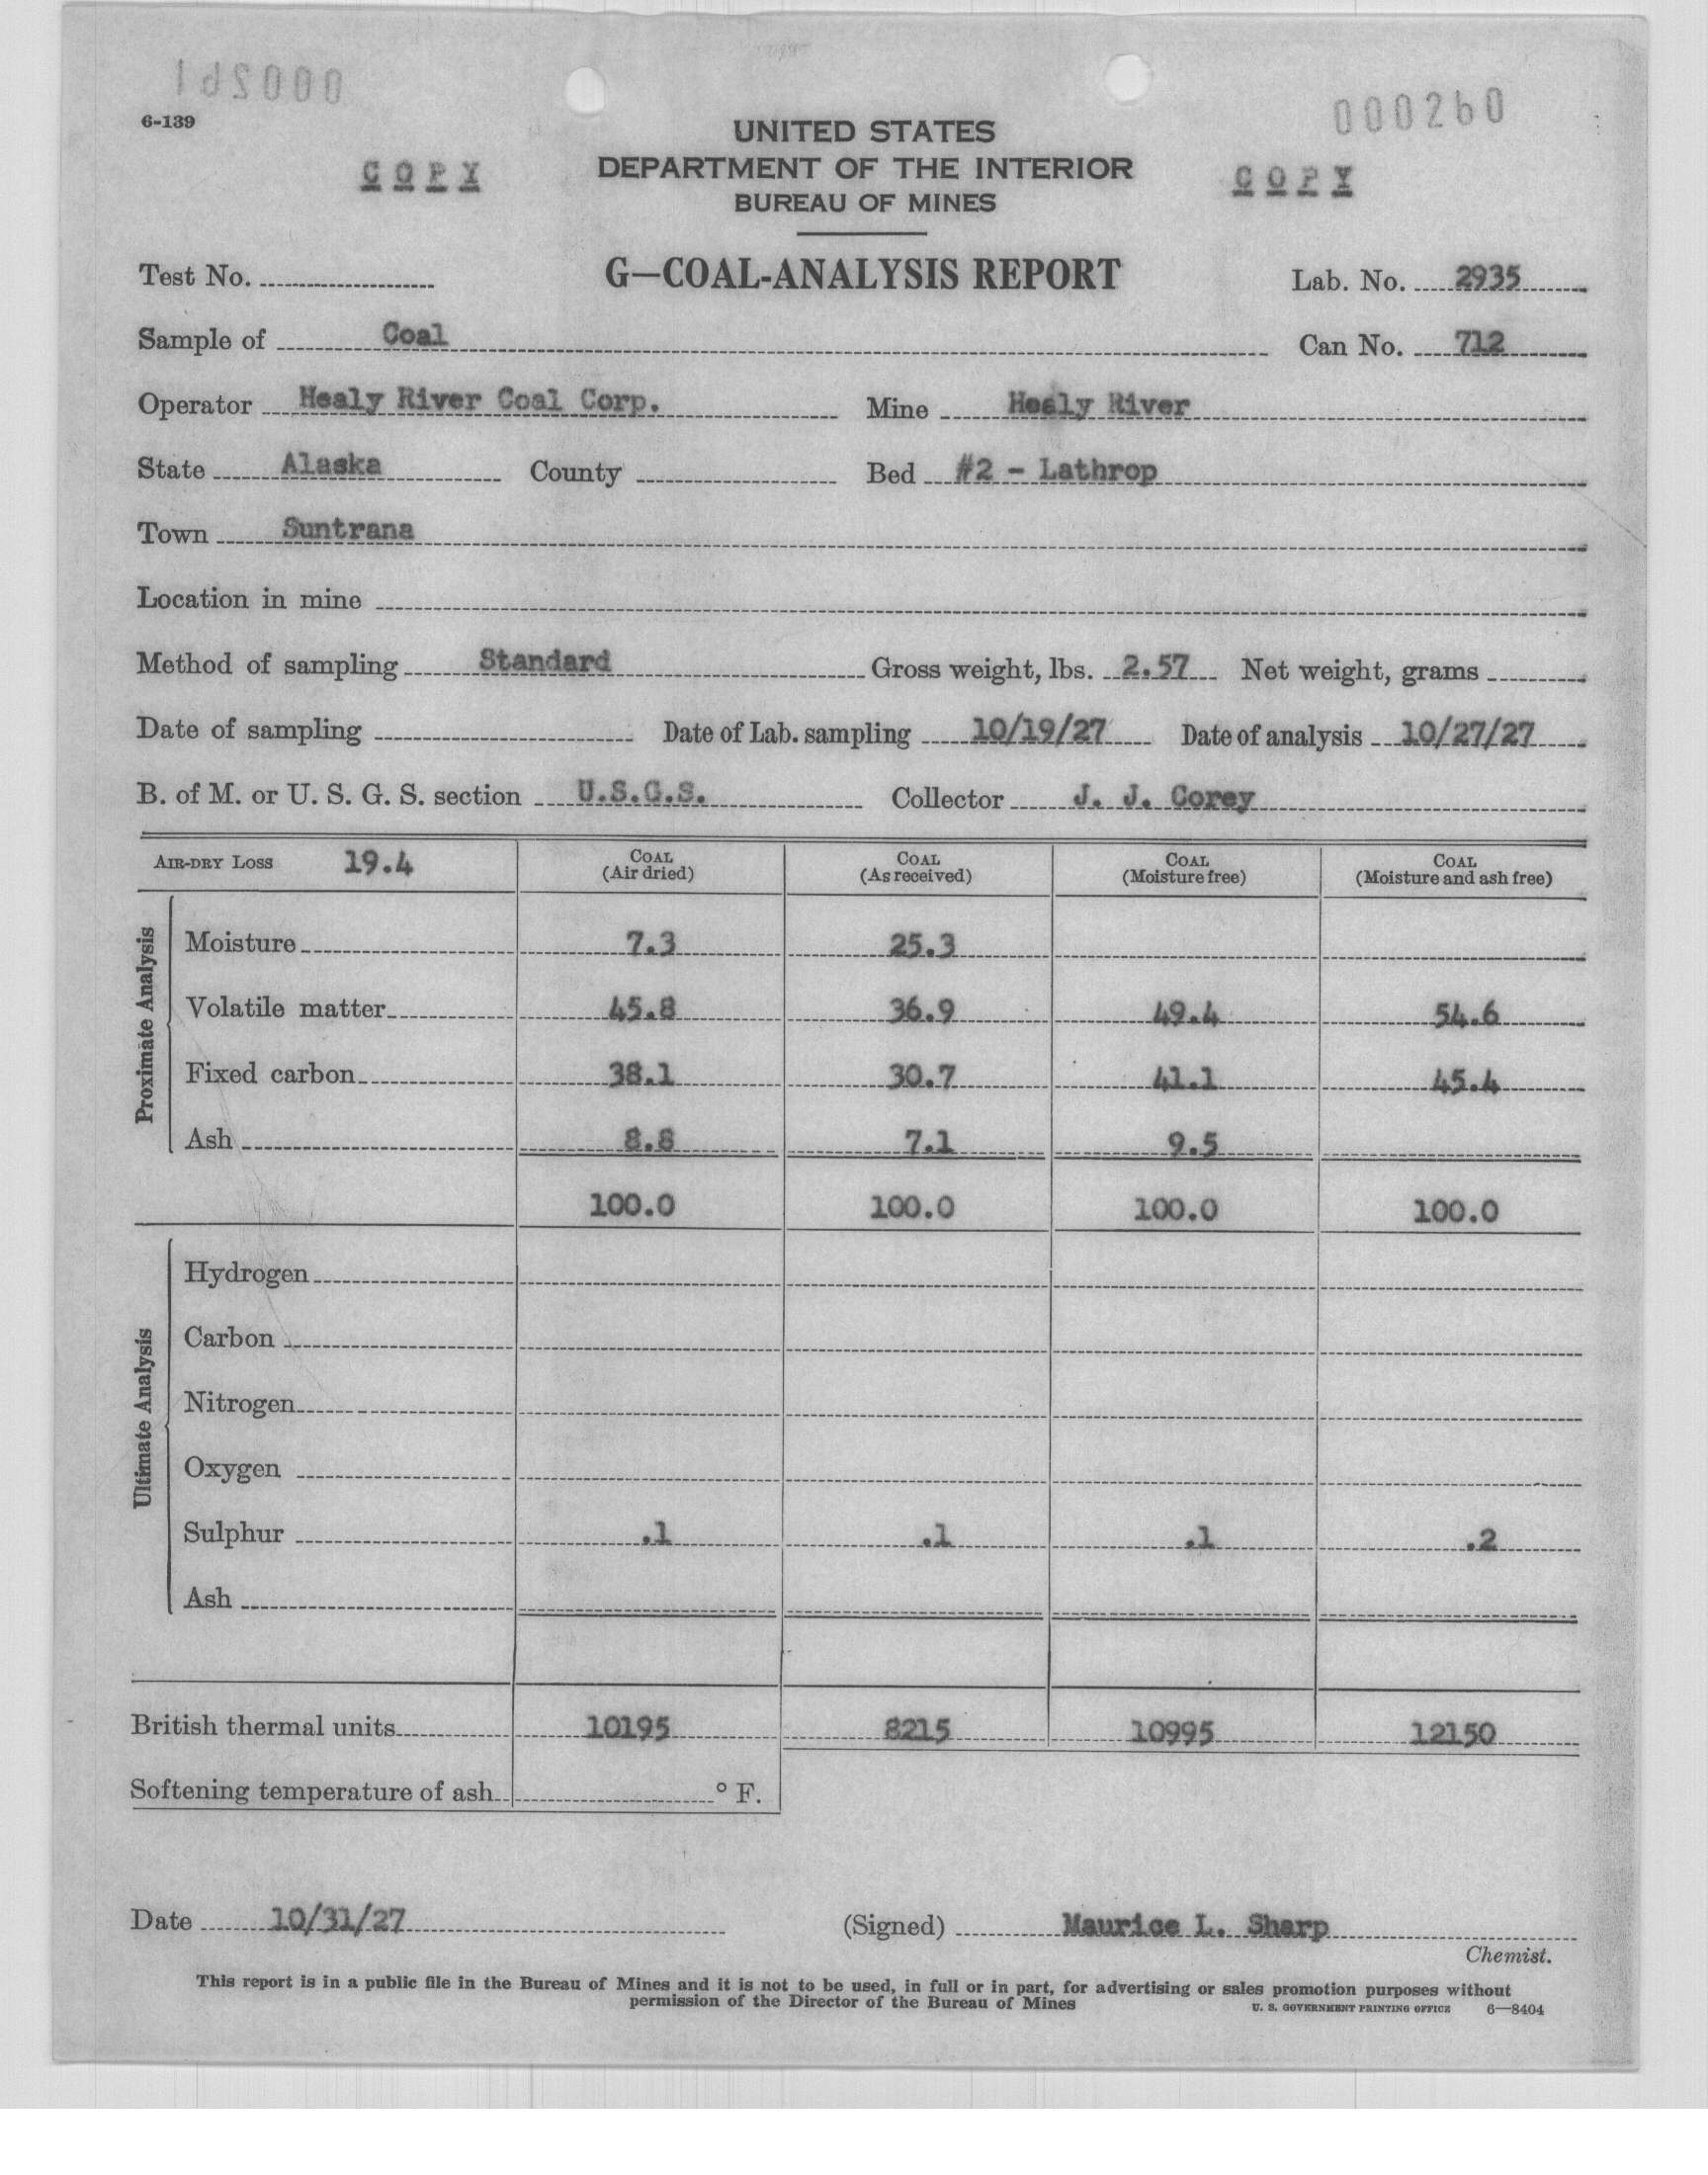 000260
6-139
UNITED STATES
COPY DEPARTMENT OF THE INTERIOR COPY
BUREAU OF MINES
Test No. G—COAL-ANALYSIS REPORT Lab. No. 2935
Sample of Coal Can No. 712
Operator Healy River Coal Corp. Mine Healy River
State Alaska County Bed #2 - Lathrop
Town Suntrana
Location in mine
Method of sampling Standard Gross weight, lbs. 2.57 Net weight, grams
Date of sampling Date of Lab. sampling 10/19/27 Date of analysis 10/27/27
B. of M. or U. S. G. S. section U.S.G.S. Collector J. J. Corey
AIR-DRY LOSS 19.4 COAL (Air dried) COAL (As received) COAL (Moisture free) COAL (Moisture and ash free)
Proximate Analysis
Moisture 7.3 25.3
Volatile matter 45.8 36.9 49.4 54.6
Fixed carbon 38.1 30.7 41.1 45.4
Ash 8.8 7.1 9.5
100.0 100.0 100.0 100.0
Ultimate Analysis
Hydrogen
Carbon
Nitrogen
Oxygen
Sulphur .1 .1 .1 .2
Ash
British thermal units 10195 8215 10995 12150
Softening temperature of ash ° F.
Date 10/31/27 (Signed) Maurice L. Sharp
Chemist.
This report is in a public file in the Bureau of Mines and it is not to be used, in full or in part, for advertising or sales promotion purposes without
permission of the Director of the Bureau of Mines U. S. GOVERNMENT PRINTING OFFICE 6—8404